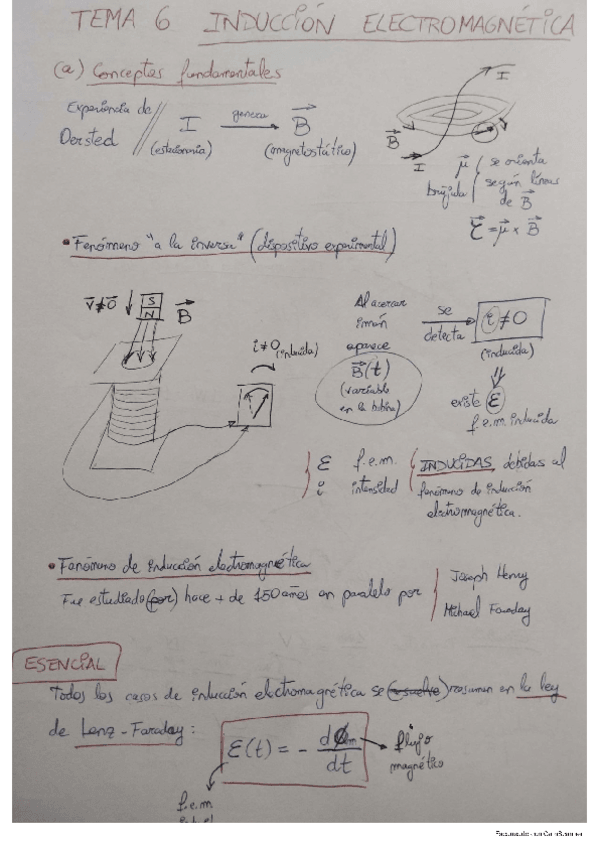 TEMA 6 INDUCCIÓN ELECTROMAGNÉTICA
(a) Conceptos fundamentales
Experiencia de
Oersted
I
(estacionaria)
genera
B
(magnetostático)
I
B
I
μ
brújula
se orienta
según líneas
de B
τ = μ × B
• Fenómeno "a la inversa" (dispositivo experimental)
v≠0
S
N
B
i≠0 (inducida)
Al acercar
imán
aparece
B(t)
(variable
en la bobina)
se
detecta
i ≠ 0
(inducida)
existe ε
f.e.m. inducida
ε f.e.m.
i intensidad
INDUCIDAS debidas al
fenómeno de inducción
electromagnética.
• Fenómeno de inducción electromagnética
Fue estudiado (por) hace + de 150 años en paralelo por
Joseph Henry
Michael Faraday
ESENCIAL
Todos los casos de inducción electromagnética se resumen en la ley
de Lenz-Faraday:
ε(t) = - dΦm/dt
flujo
magnético
f.e.m.